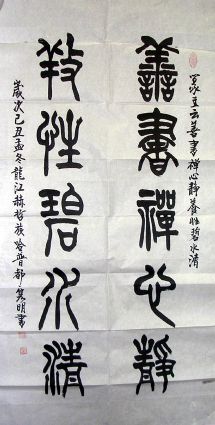 主云善書禪心静養性碧水清
善書禪心靜
養性碧水清
歲次己丑孟冬龍江赫哲族哈普都·明書